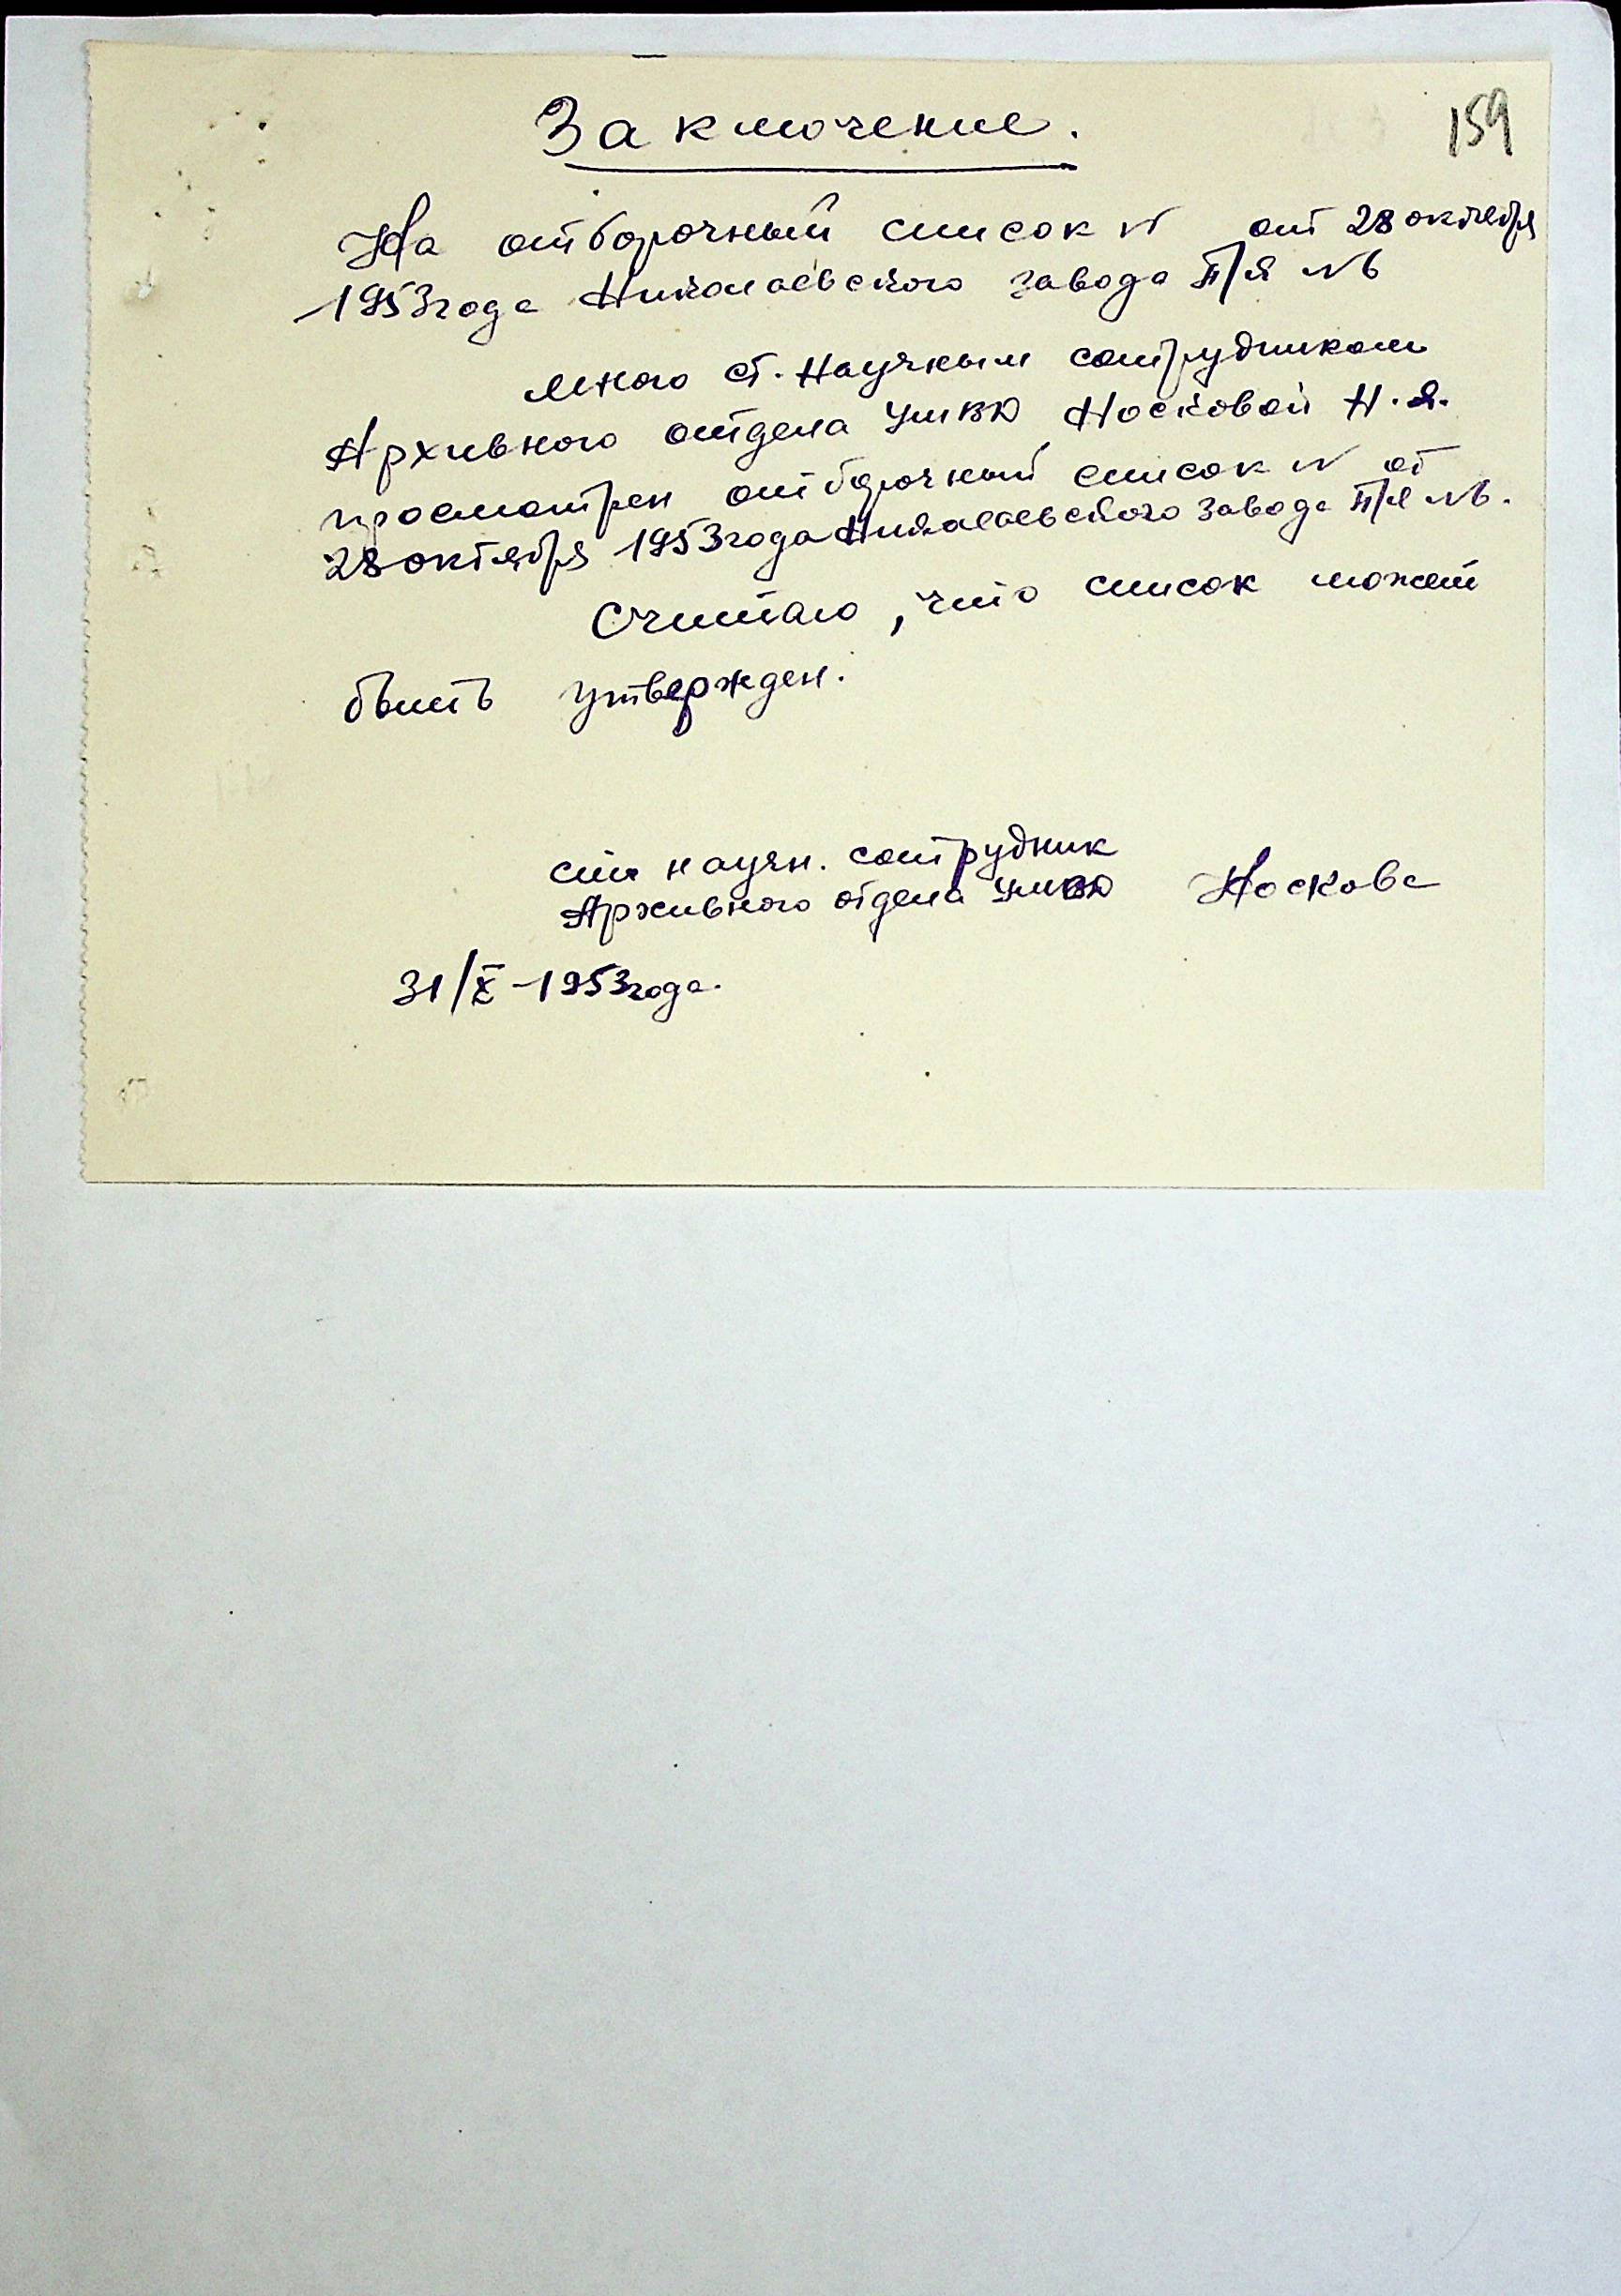 159
Заключение.
На отборочный список № от 28 октября
1953 года Николаевского завода П/Я №6
мною ст. Научным сотрудником
Архивного отдела УМВД Носковой Н.Я.
просмотрен отборочный список № от
28 октября 1953 года Николаевского завода П/Я №6.
Считаю, что список может
быть утвержден.
ст. научн. сотрудник
Архивного отдела УМВД Носкова
31/X-1953 года.